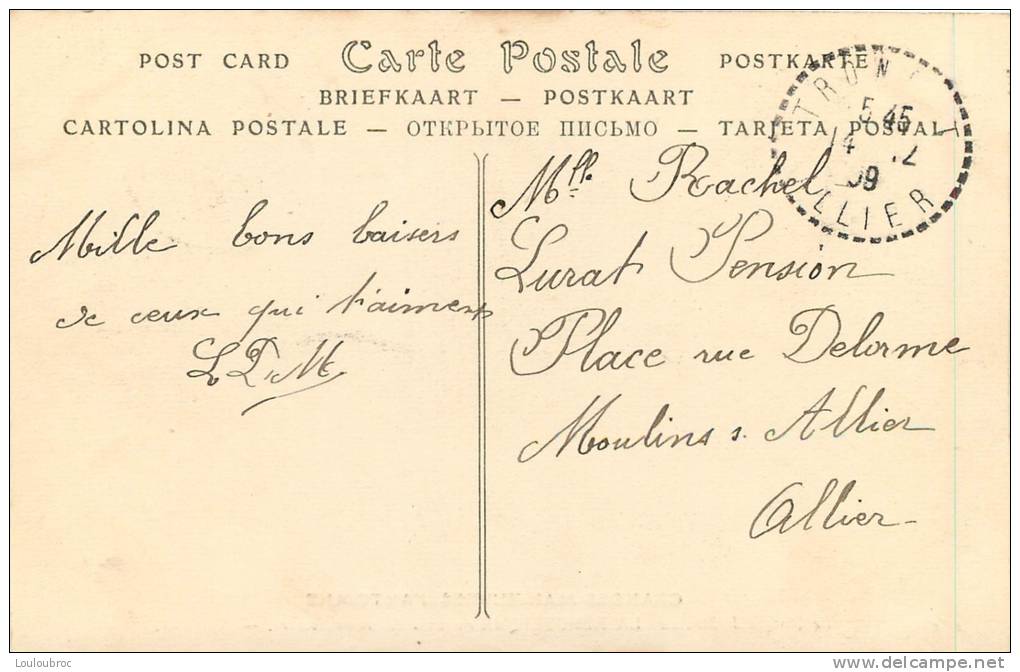 POST CARD Carte Postale POSTKARTE
BRIEFKAART — POSTKAART
CARTOLINA POSTALE — ОТКРЫТОЕ ПИСЬМО — TARJETA POSTAL
5 45
14 12
09
ALLIER
Mlle Rachel
Lurat Pension
Place rue Delorme
Moulins s. Allier
Allier
Mille bons baisers
de ceux qui t'aiment
L D M
Louloubroc
www.delcampe.net